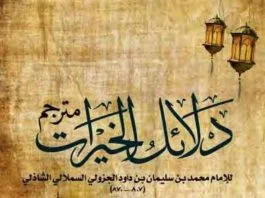 دلائل الخيرات
مترجم
للإمام محمد بن سليمان بن داود الجزولي السملالي الشاذلي
(٨٠٧-٨٧٠)